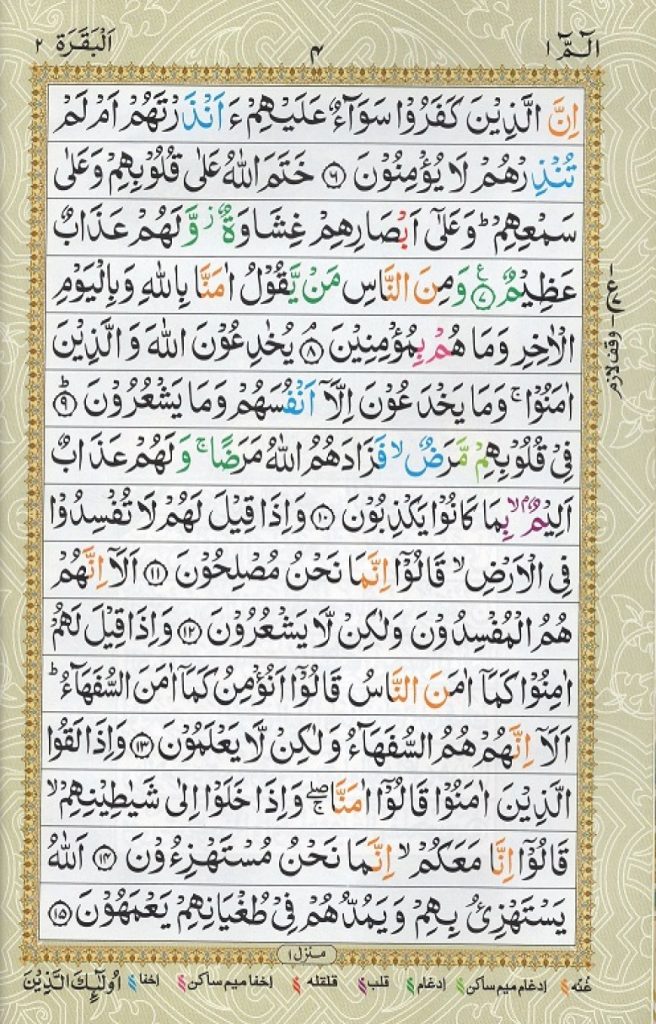 الٓمّٓ ١ ٤ اَلْبَقَرَة ٢
اِنَّ الَّذِيْنَ كَفَرُوْا سَوَآءٌ عَلَيْهِمْ ءَاَنْذَرْتَهُمْ اَمْ لَمْ
تُنْذِرْهُمْ لَا يُؤْمِنُوْنَ ﴿٦﴾ خَتَمَ اللّٰهُ عَلٰى قُلُوْبِهِمْ وَعَلٰى
سَمْعِهِمْ ؕ وَعَلٰٓى اَبْصَارِهِمْ غِشَاوَةٌ ز وَّلَهُمْ عَذَابٌ
عَظِيْمٌ ﴿٧﴾ ع وَمِنَ النَّاسِ مَنْ يَّقُوْلُ اٰمَنَّا بِاللّٰهِ وَبِالْيَوْمِ
الْاٰخِرِ وَمَا هُمْ بِمُؤْمِنِيْنَ ﴿٨﴾ يُخٰدِعُوْنَ اللّٰهَ وَالَّذِيْنَ
اٰمَنُوْا ۚ وَمَا يَخْدَعُوْنَ اِلَّآ اَنْفُسَهُمْ وَمَا يَشْعُرُوْنَ ﴿٩﴾ؕ
فِيْ قُلُوْبِهِمْ مَّرَضٌ ۙ فَزَادَهُمُ اللّٰهُ مَرَضًا ۚ وَلَهُمْ عَذَابٌ
اَلِيْمٌ ۢ ۙ بِمَا كَانُوْا يَكْذِبُوْنَ ﴿١٠﴾ وَاِذَا قِيْلَ لَهُمْ لَا تُفْسِدُوْا
فِي الْاَرْضِ ۙ قَالُوْٓا اِنَّمَا نَحْنُ مُصْلِحُوْنَ ﴿١١﴾ اَلَآ اِنَّهُمْ
هُمُ الْمُفْسِدُوْنَ وَلٰكِنْ لَّا يَشْعُرُوْنَ ﴿١٢﴾ وَاِذَا قِيْلَ لَهُمْ
اٰمِنُوْا كَمَآ اٰمَنَ النَّاسُ قَالُوْٓا اَنُؤْمِنُ كَمَآ اٰمَنَ السُّفَهَآءُ ؕ
اَلَآ اِنَّهُمْ هُمُ السُّفَهَآءُ وَلٰكِنْ لَّا يَعْلَمُوْنَ ﴿١٣﴾ وَاِذَا لَقُوا
الَّذِيْنَ اٰمَنُوْا قَالُوْٓا اٰمَنَّا ۖۚ وَاِذَا خَلَوْا اِلٰى شَيٰطِيْنِهِمْ ۙ
قَالُوْٓا اِنَّا مَعَكُمْ ۙ اِنَّمَا نَحْنُ مُسْتَهْزِءُوْنَ ﴿١٤﴾ اَللّٰهُ
يَسْتَهْزِئُ بِهِمْ وَيَمُدُّهُمْ فِيْ طُغْيَانِهِمْ يَعْمَهُوْنَ ﴿١٥﴾
ع
وقف لازم
منزل ١
غُنّه ادغام میم ساکن ادغام قلب قلقله اخفا میم ساکن اخفا اُولٰٓئِكَ الَّذِيْنَ